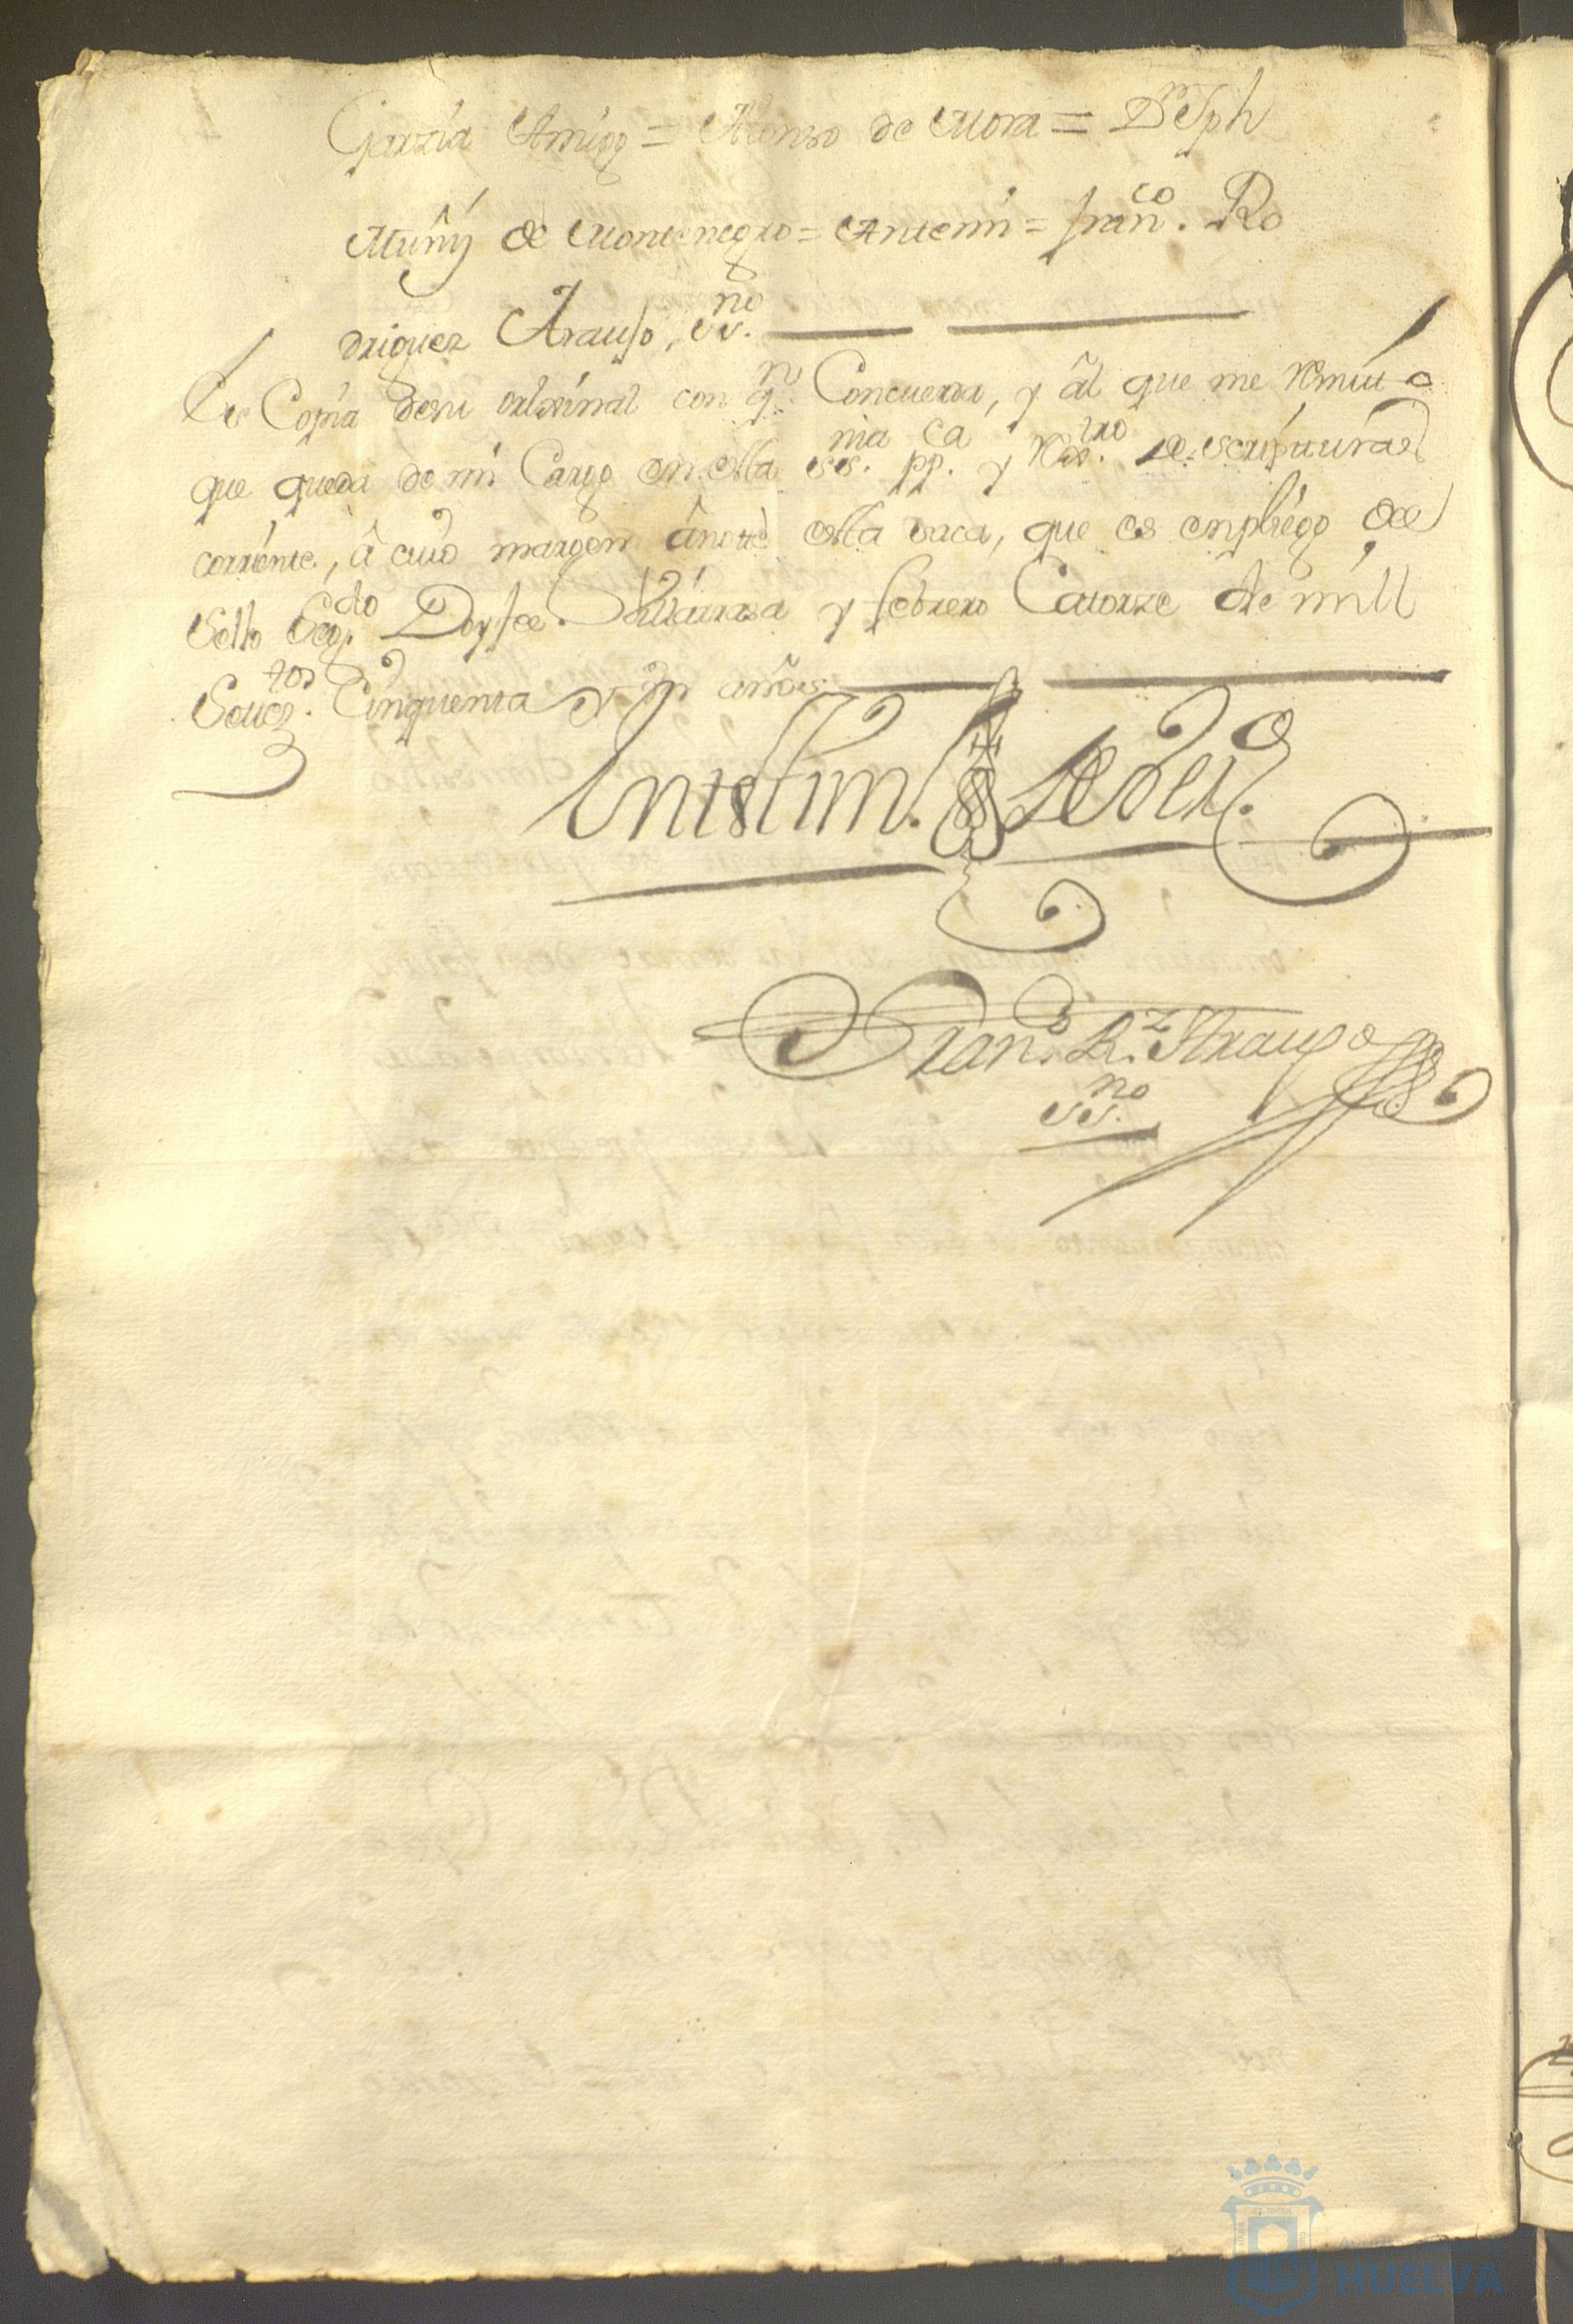 Garzia Amigo = Alonso de Mora = Dn Jph
Muñiz de Montenegro = Antemi = Franco. Ro
driguez Arauso, ssno.
Es Copia desu original con qn. Concuerda, y âl que me remito
que queda de mi Cargo en esta ssnia. ppca. y Rextro. de escripturas
corriente, â cuio margen ânoté esta saca, que es en pliego del
Sello Segdo. Doy fee. Villarrasa y febrero Catorze de mill
Setectos. Cinquenta y años
Intestim. de Verd.
Franco. Rz. Arauso
ssno.
HUELVA